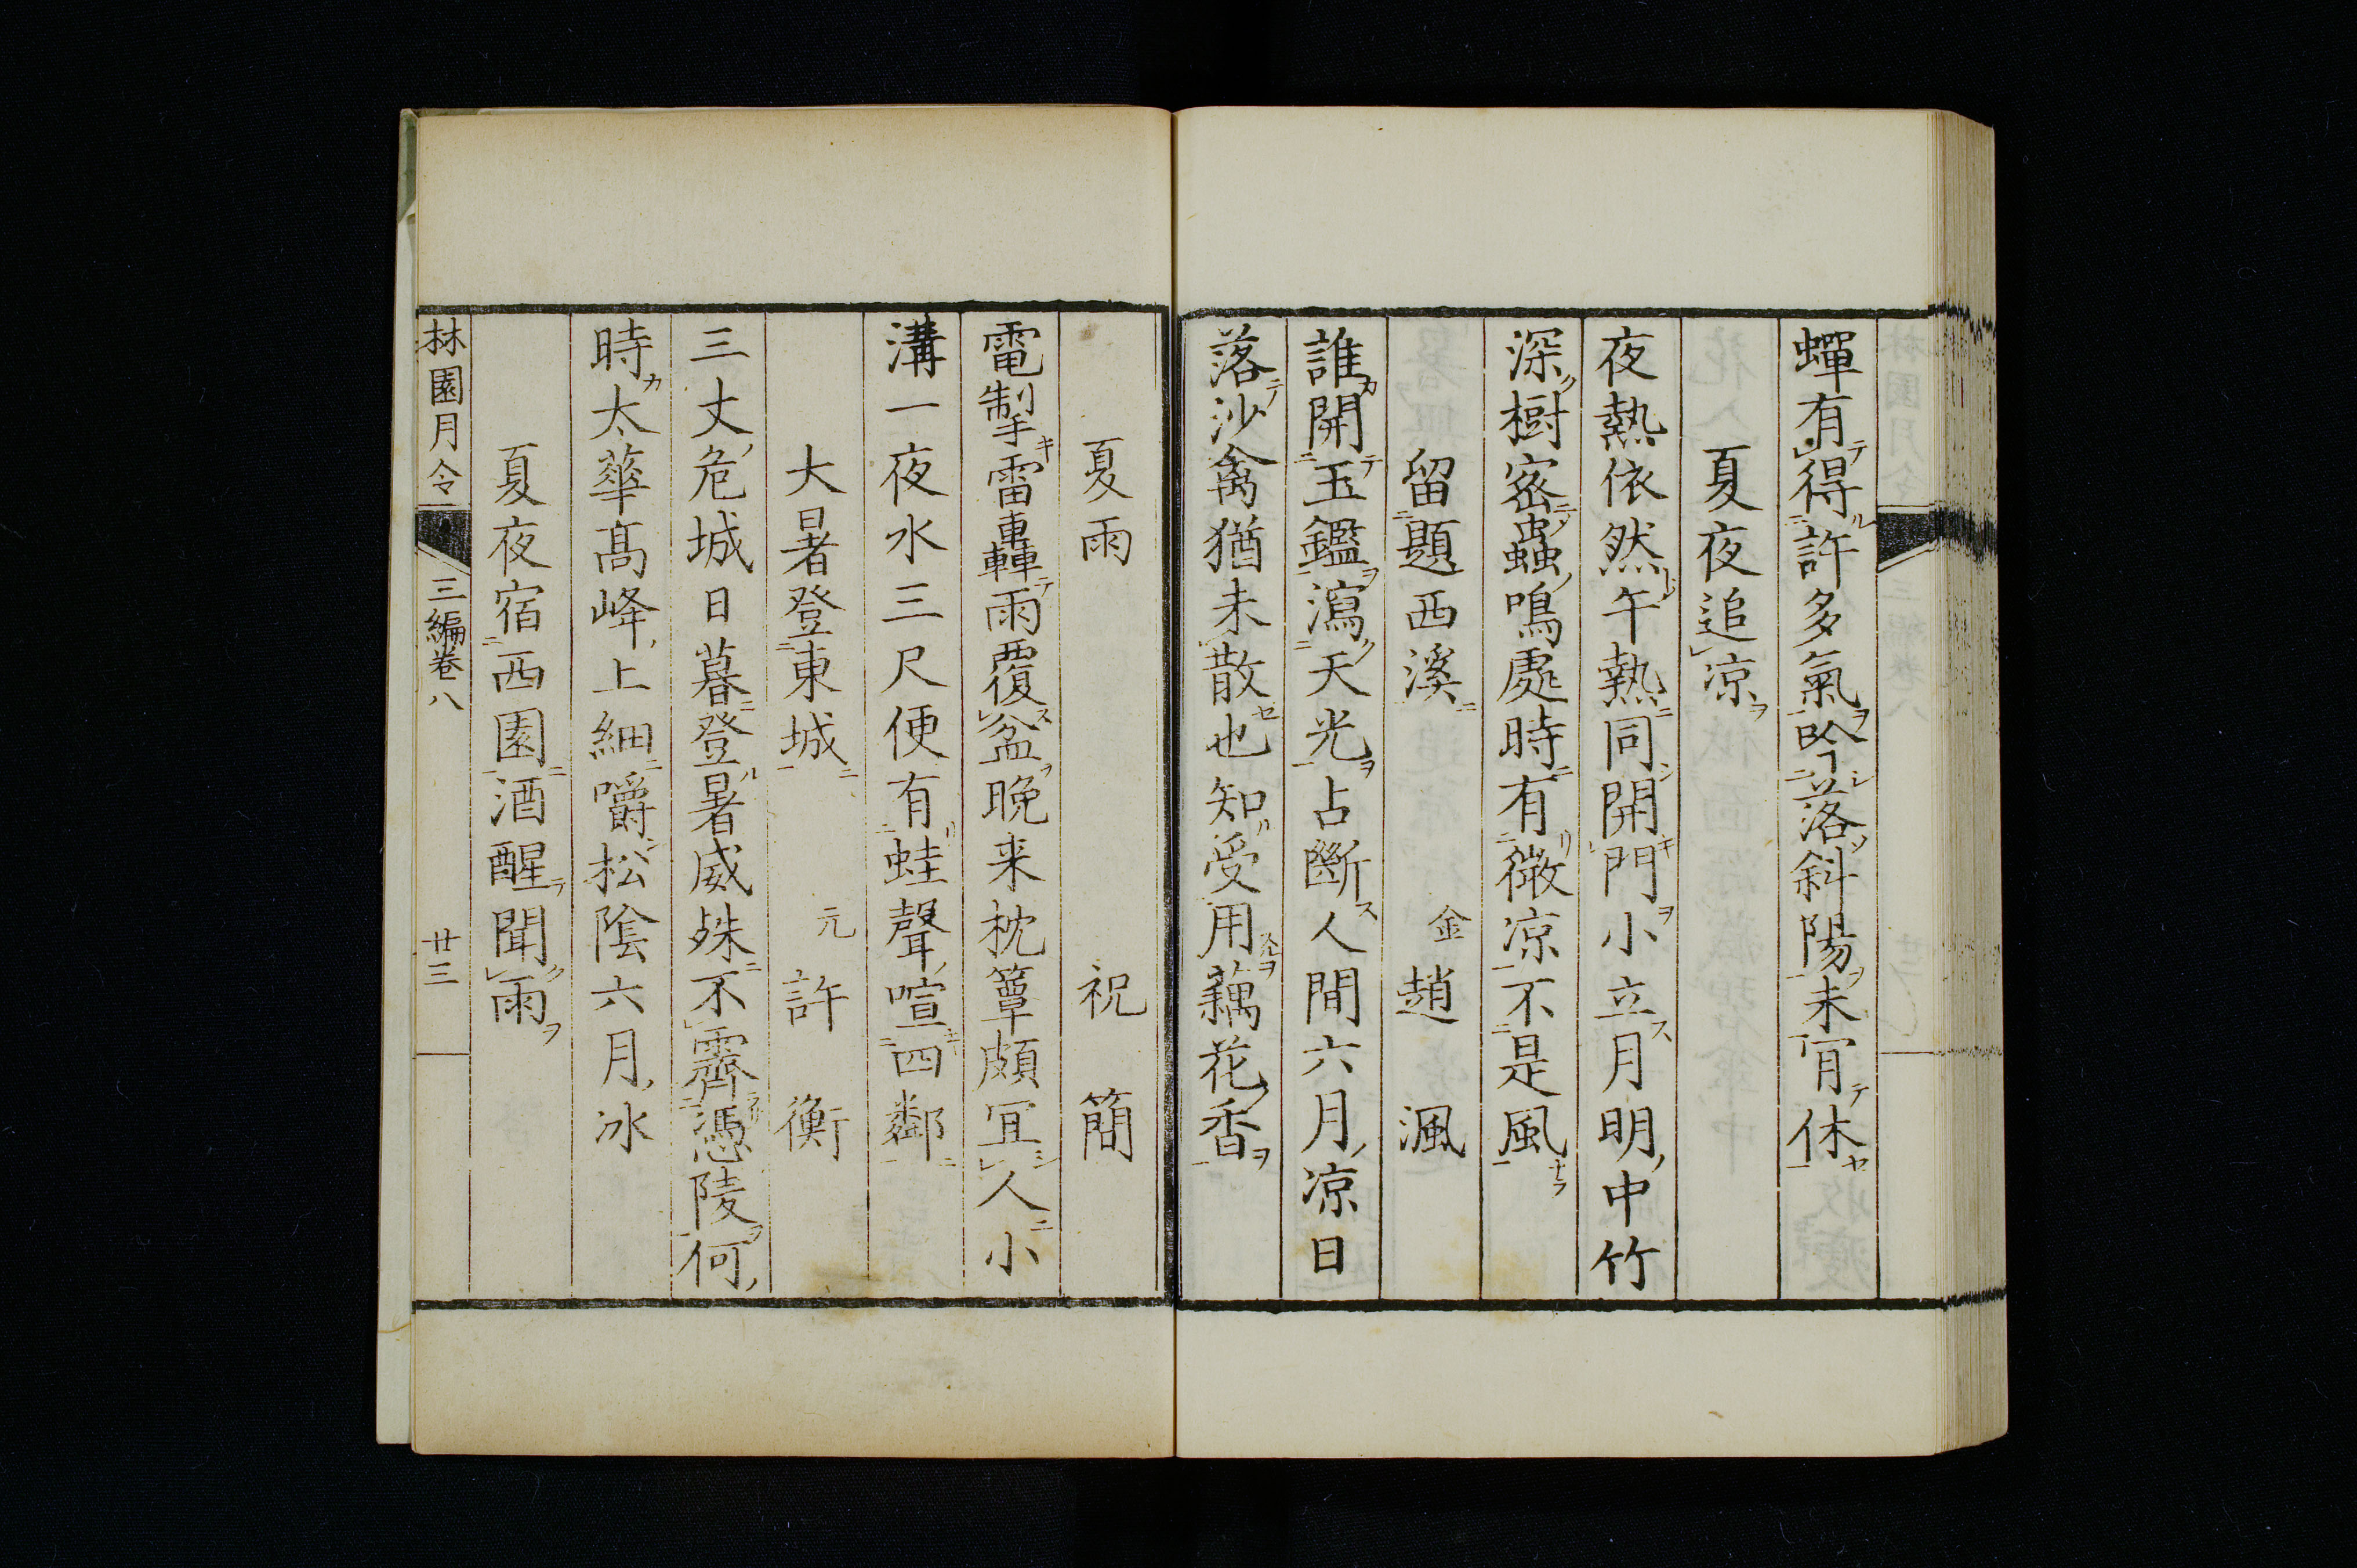 蟬有得許多氣吟落斜陽未肯休
夏夜追凉
夜熱依然午熱同開門小立月明中竹
深樹宻蟲鳴處時有微凉不是風
留題西溪　金　趙渢
誰開玉鑑瀉天光占斷人間六月凉日
落沙禽猶未散也知受用藕花香
夏雨　祝簡
電掣雷轟雨覆盆晚来枕簟頗冝人小
溝一夜水三尺便有蛙聲喧四鄰
大暑登東城　元　許衡
三丈危城日暮登暑威殊不霽憑陵何
時太華髙峰上細嚼松陰六月冰
夏夜宿西園酒醒聞雨
林園月令　三編卷八　廿三